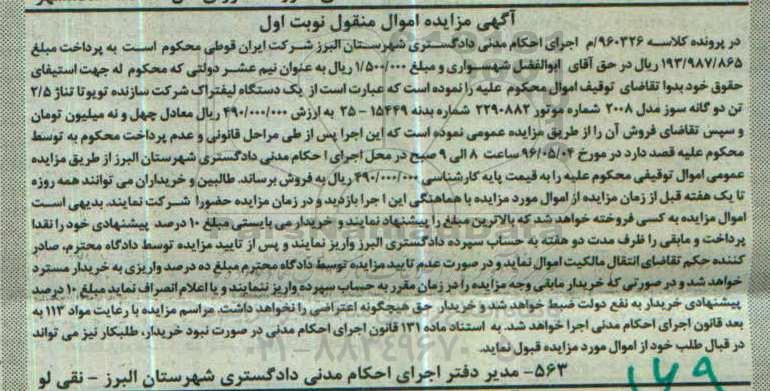 آگهی مزایده اموال منقول نوبت اول
در پرونده کلاسه ۹۶۰۳۲۶/م اجرای احکام مدنی دادگستری شهرستان البرز شرکت ایران قوطی محکوم است به پرداخت مبلغ
۱۹۳/۹۸۷/۸۶۵ ریال در حق آقای ابوالفضل شهسواری و مبلغ ۱/۵۰۰/۰۰۰ ریال به عنوان نیم عشر دولتی که محکوم له جهت استیفای
حقوق خود بدوا تقاضای توقیف اموال محکوم علیه را نموده است که عبارت است از یک دستگاه لیفتراک شرکت سازنده تویوتا تناژ ۲/۵
تن دو گانه سوز مدل ۲۰۰۸ شماره موتور ۲۲۹۰۸۸۲ شماره بدنه ۱۵۴۴۹ - ۲۵ به ارزش ۴۹۰/۰۰۰/۰۰۰ ریال معادل چهل و نه میلیون تومان
و سپس تقاضای فروش آن را از طریق مزایده عمومی نموده است که این اجرا پس از طی مراحل قانونی و عدم پرداخت محکوم به توسط
محکوم علیه قصد دارد در مورخ ۹۶/۰۵/۰۴ ساعت ۸ الی ۹ صبح در محل اجرای احکام مدنی دادگستری شهرستان البرز از طریق مزایده
عمومی اموال توقیفی محکوم علیه را به قیمت پایه کارشناسی ۴۹۰/۰۰۰/۰۰۰ ریال به فروش برساند. طالبین و خریداران می توانند همه روزه
تا یک هفته قبل از زمان مزایده از اموال مورد مزایده با هماهنگی این اجرا بازدید و در زمان مزایده حضورا شرکت نمایند. بدیهی است
اموال مزایده به کسی فروخته خواهد شد که بالاترین مبلغ را پیشنهاد نمایند و خریدار می بایستی مبلغ ۱۰ درصد پیشنهادی خود را نقدا
پرداخت و مابقی را ظرف مدت دو هفته به حساب سپرده دادگستری البرز واریز نمایند و پس از تایید مزایده توسط دادگاه محترم، صادر
کننده حکم تقاضای انتقال مالکیت اموال نماید و در صورت عدم تایید مزایده توسط دادگاه محترم مبلغ ده درصد واریزی به خریدار مسترد
خواهد شد و در صورتی که خریدار مابقی وجه مزایده را در زمان مقرر به حساب سپرده واریز ننمایند و یا اعلام انصراف نماید مبلغ ۱۰ درصد
پیشنهادی خریدار به نفع دولت ضبط خواهد شد و خریدار حق هیچگونه اعتراضی را نخواهد داشت. مراسم مزایده با رعایت مواد ۱۱۳ به
بعد قانون اجرای احکام مدنی اجرا خواهد شد. به استناد ماده ۱۳۱ قانون اجرای احکام مدنی در صورت نبود خریدار، طلبکار نیز می تواند
در قبال طلب خود از اموال مورد مزایده قبول نماید.
۵۶۳- مدیر دفتر اجرای احکام مدنی دادگستری شهرستان البرز - نقی لو
۱۷۹
۰۲۱-۸۸۳۴۹۶۷۰